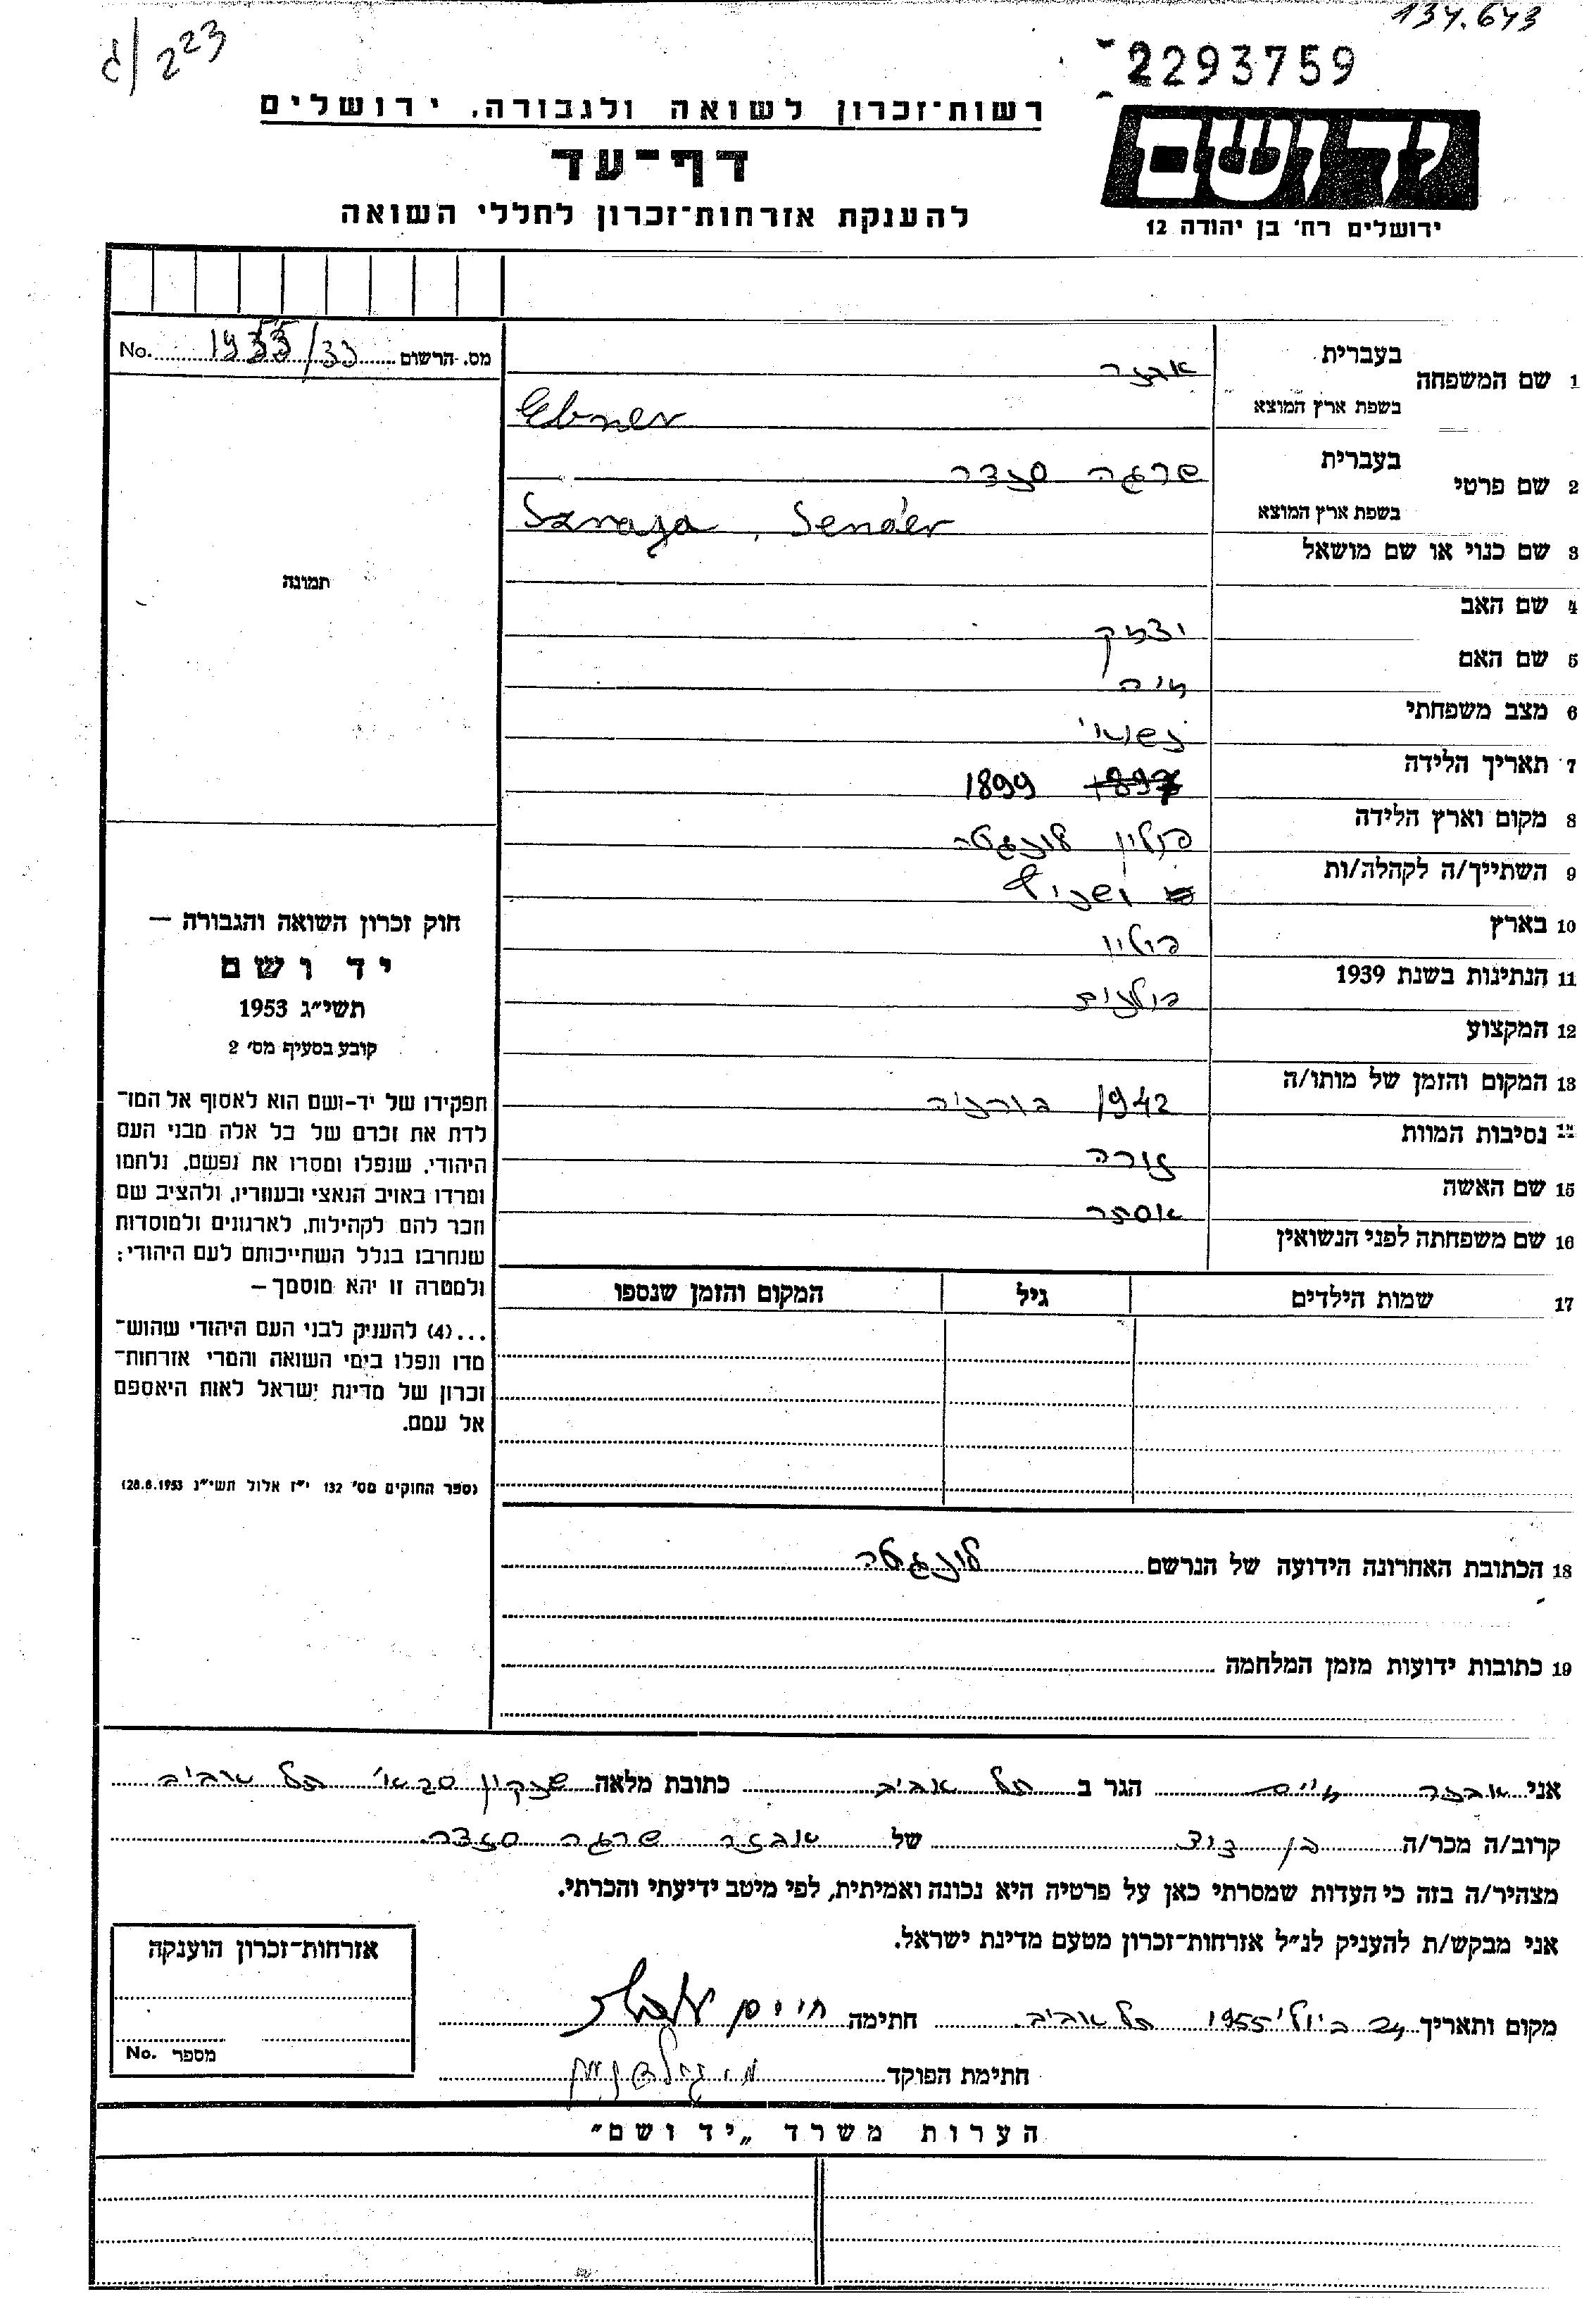 134.643
223/ג
2293759
רשות־זכרון לשואה ולגבורה, ירושלים
ידושם
דף־עד
ירושלים רח' בן יהודה 12
להענקת אזרחות־זכרון לחללי השואה
מס. הרשום 1955/33 No.
1 שם המשפחה
בעברית אבנר
בשפת ארץ המוצא Ebner
2 שם פרטי
בעברית שרגה סנדר
בשפת ארץ המוצא Sznaga, Sender
3 שם כנוי או שם מושאל
4 שם האב יצחק
5 שם האם חיה
6 מצב משפחתי נשואי
7 תאריך הלידה 1897 1899
8 מקום וארץ הלידה פולין
9 השתייך/ה לקהלה/ות
10 בארץ פולין
11 הנתינות בשנת 1939 פולנית
12 המקצוע
13 המקום והזמן של מותו/ה 1942
14 נסיבות המוות
15 שם האשה אסתר
16 שם משפחתה לפני הנשואין
17 שמות הילדים גיל המקום והזמן שנספו
18 הכתובת האחרונה הידועה של הנרשם
19 כתובות ידועות מזמן המלחמה
תמונה
חוק זכרון השואה והגבורה —
יד ושם
תשי״ג 1953
קובע בסעיף מס׳ 2
תפקידו של יד-ושם הוא לאסוף אל המו־
לדת את זכרם של כל אלה מבני העם
היהודי, שנפלו ומסרו את נפשם, נלחמו
ומרדו באויב הנאצי ובעוזריו, ולהציב שם
וזכר להם לקהילות, לארגונים ולמוסדות
שנחרבו בגלל השתייכותם לעם היהודי;
ולמטרה זו יהא מוסמך —
...(4) להעניק לבני העם היהודי שהוש־
מדו ונפלו בימי השואה והמרי אזרחות־
זכרון של מדינת ישראל לאות היאספם
אל עמם.
(ספר החוקים מס׳ 132 י״ז אלול תשי״ג 28.8.1953)
אני אבנר חיים הגר ב תל אביב כתובת מלאה תל אביב
קרוב/ה מכר/ה בן דוד של אבנר שרגה סנדר
מצהיר/ה בזה כי העדות שמסרתי כאן על פרטיה היא נכונה ואמיתית, לפי מיטב ידיעתי והכרתי.
אני מבקש/ת להעניק לנ״ל אזרחות־זכרון מטעם מדינת ישראל.
מקום ותאריך ביולי 1955 תל אביב חתימה חיים
חתימת הפוקד
אזרחות־זכרון הוענקה
מספר No.
הערות משרד „יד ושם״